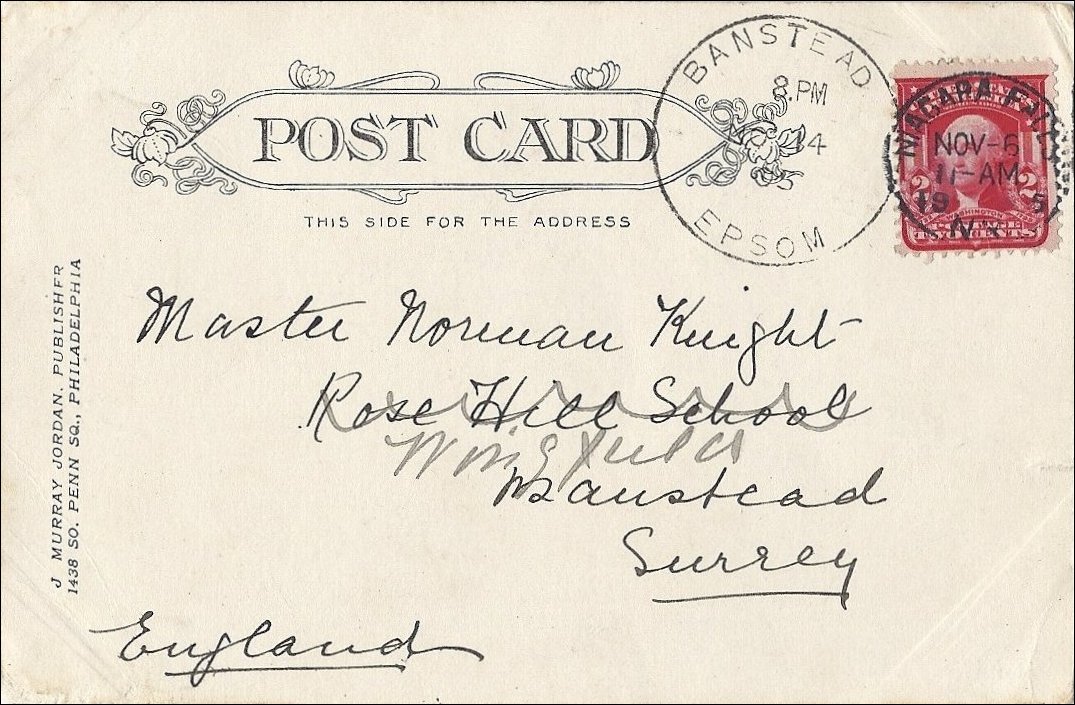 POST CARD
THIS SIDE FOR THE ADDRESS
BANSTEAD
8.PM
4
EPSOM
NIAGARA FALLS
NOV-6
11-AM
19 5
N.Y.
2 2
WASHINGTON
TWO CENTS
Master Norman Knight
Rose Hill School
Wingfield
Banstead
Surrey
England
J MURRAY JORDAN, PUBLISHER
1438 SO. PENN SQ., PHILADELPHIA